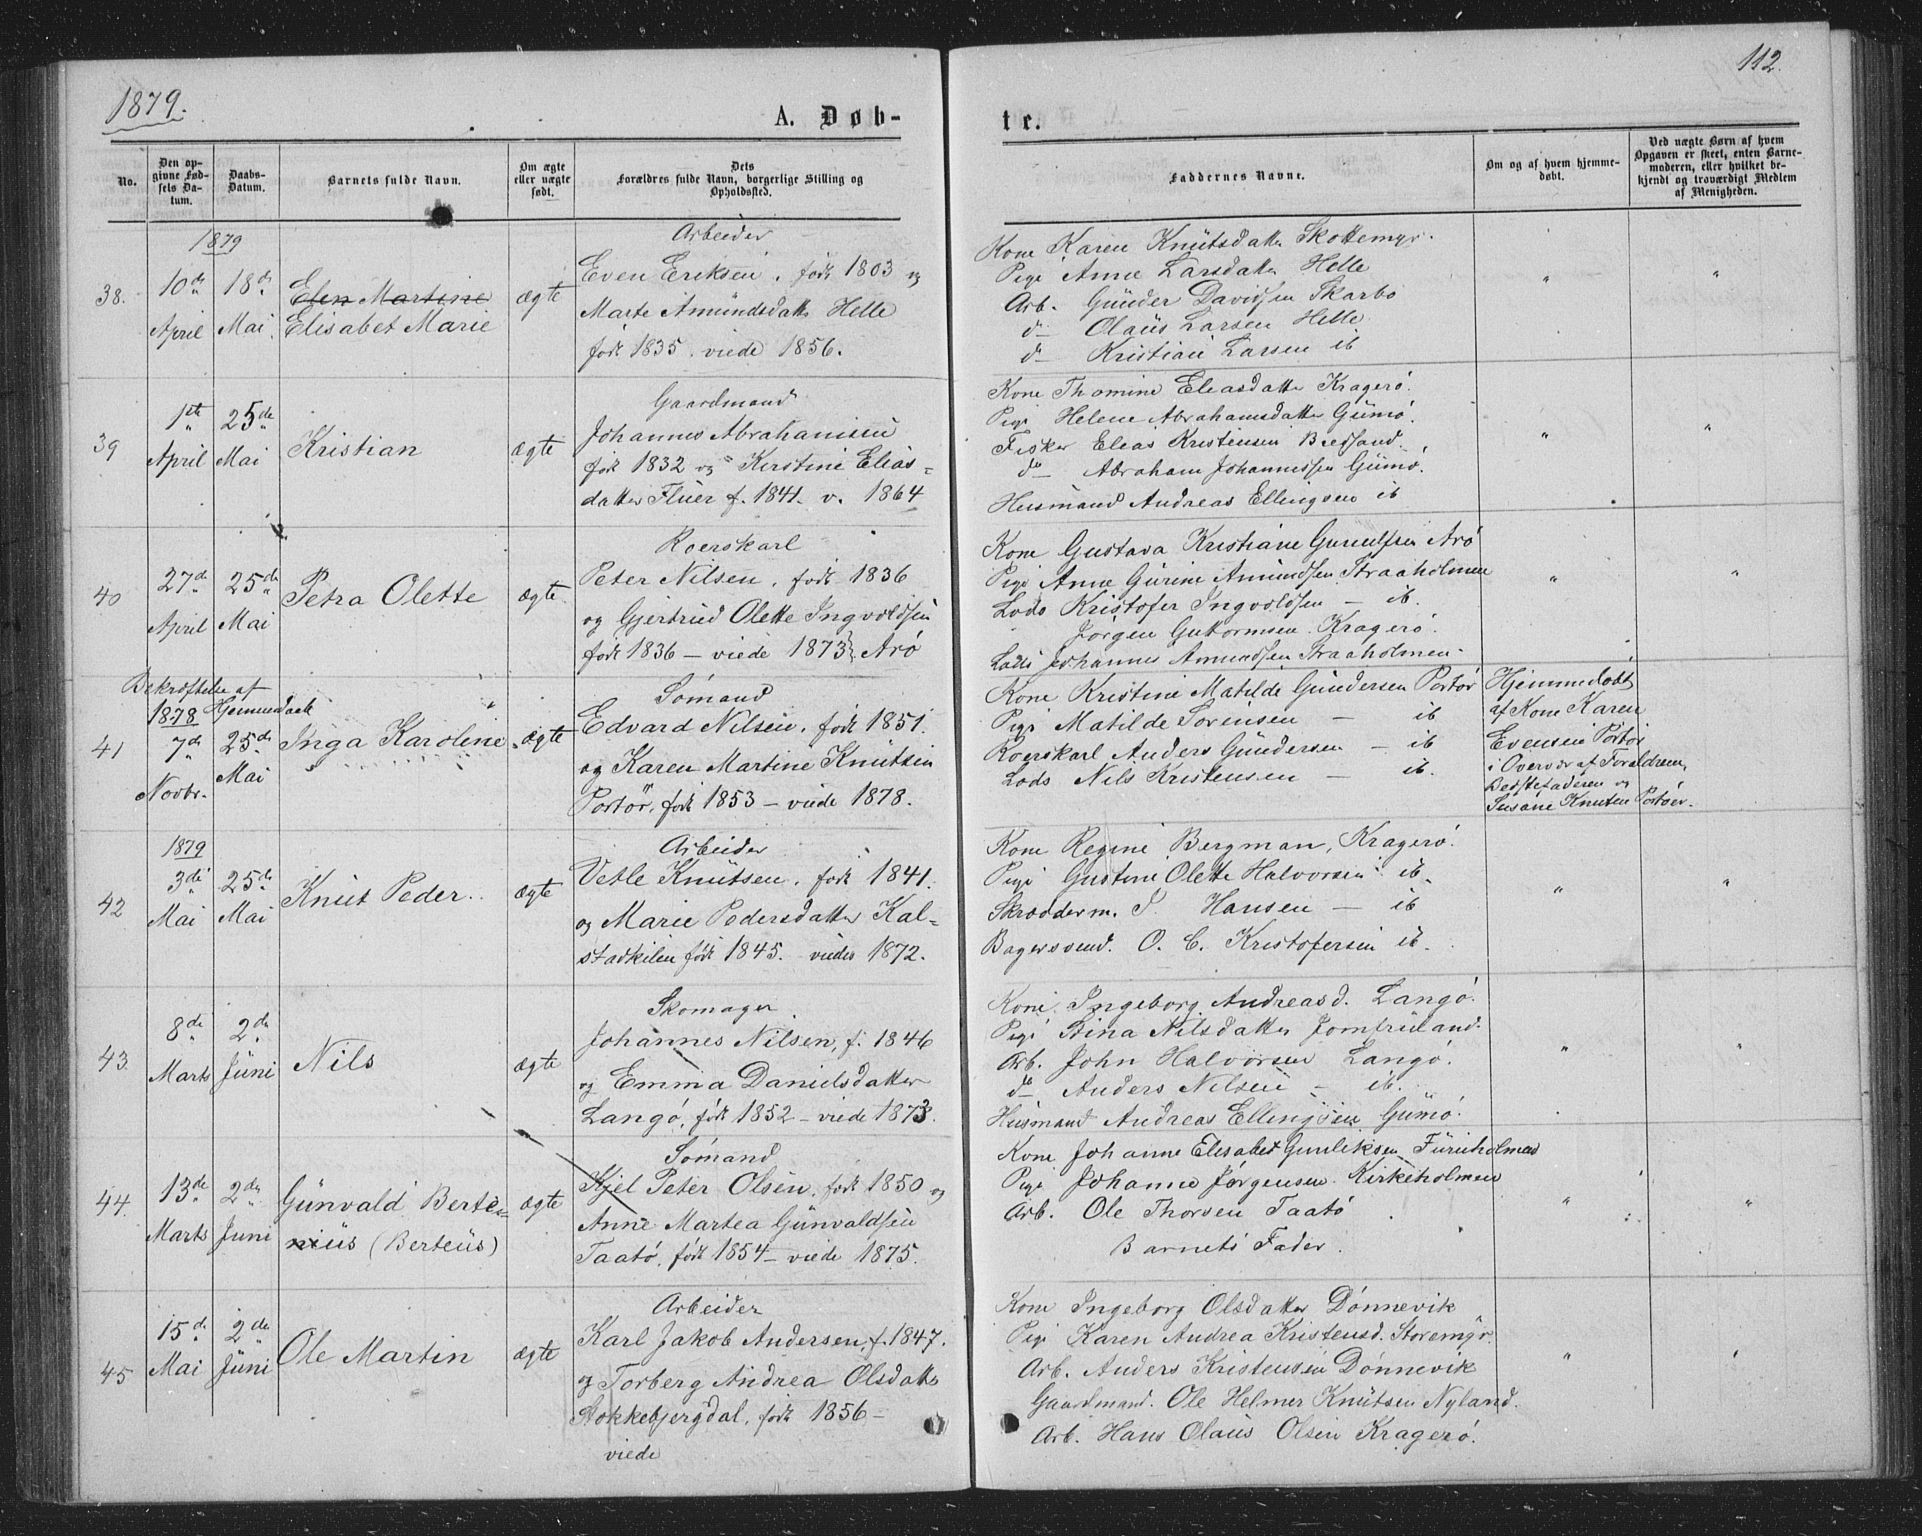 1879.
112.
A. Døb-
te.
No.
Den opgivne Fødsels Datum.
Daabs-Datum.
Barnets fulde Navn.
Om ægte eller uægte født.
Dets Forældres fulde Navn, borgerlige Stilling og Opholdssted.
Faddernes Navne.
Om og af hvem hjemmedøbt.
Ved uægte Børn af hvem Opgaven er skeet, enten Barnemoderen, eller hvilket bekjendt og troværdigt Medlem af Menigheden.
1879
38.
10de April
18de Mai.
Elen Martine
Elisabet Marie
ægte
Arbeider
Even Eriksen, født 1803 og
Marte Amundsdatter Helle
født 1835. viede 1856.
Kone Karen Knutsdatter Skottemyr.
Pige Anne Larsdatter Helle
Arb. Gunder Davidsen Skarbo
do Olaus Larsen Helle
do Kristian Larsen ib
39
1ste April
25de Mai
Kristian
ægte
Gaardmand
Johannes Abrahamsen
født 1832 og Kirstine Elias-
datter Fluer f. 1841. v. 1864
Kone Thomine Eleasdatter Kragerø.
Pige Helene Abrahamsdatter Gumø.
Fisker Eleas Kristensen
do Abraham Johannessen Gumø.
Husmand Andreas Ellingsen ib
40
27de April
25de Mai
Petra Olette
ægte
Roerskarl
Peter Nilsen, født 1836
og Gjertrud Olette Ingvoldsen
født 1836 — viede 1873 Arø
Kone Gustava Kristiane Gunulfsen Arø
Pige Anne Gurine Amundsen Straaholmen
Lods Kristofer Ingvoldsen — ib.
Jørgen Guttormsen Kragerø.
Lods Johannes Amundsen Straaholmen.
Bekræftelse af
1878 Hjemmedaab
41
7de Novbr.
25de Mai
Inga Karoline
ægte
Sømand
Edvard Nilsen, født 1851.
og Karen Martine Knutsen
Portør, født 1853 — viede 1878.
Kone Kristine Matilde Gundersen Portør
Pige Matilde Sørensen — ib
Roerskarl Anders Gundersen — ib
Lods Nils Kristensen — ib.
Hjemmedøbt
af Kone Karen
Evensen Portør
i Overvær af Forældrene,
Bedstefaderen og
Susane Knutsen Portøer.
1879
42
3die Mai
25de Mai
Knut Peder.
ægte
Arbeider
Vetle Knutsen, født 1841.
og Marie Pedersdatter Kal-
stadkilen født 1845. viedes 1872.
Kone Regine Bergman, Kragerø.
Pige Gustine Olette Halvorsen ib.
Skræderm. Hansen — ib
Bagersvend. O. C. Kristofersen ib.
43.
8de Marts
2de Juni
Nils
ægte
Skomager
Johannes Nilsen, f. 1846
og Emma Danielsdatter
Langø, født 1852 — viede 1873.
Kone. Ingeborg Andreasd. Langø.
Pige Stina Nilsdatter Jomfruland.
Arb. John Halvorsen Langø.
do Anders Nilsen — ib.
Husmand Andreas Ellingsen Gumø.
44.
13de Marts
2de Juni
Gunvald Berte-
nius (Berteus)
ægte
Sømand
Kjel Peter Olsen, født 1850 og
Anne Martea Gunvaldsen
Taatø, født 1854 — viede 1875.
Kone Johanne Elisabet Gunleksen Furuholmen
Pige Johanne Jørgensen Kirkeholmen
Arb. Ole Thorsen Taatø
Barnets Fader.
45
15de Mai
2de Juni
Ole Martin
ægte
Arbeider
Karl Jakob Andersen, f. 1847.
og Torberg Andrea Olsdatter
Stokkebjergdal, født 1856 —
viede
Kone Ingeborg Olsdatter Dønnevik
Pige Karen Andrea Kristensd. Storemyr
Arb. Anders Kristensen Dønnevik
Gaardmand. Ole Helmer Knutsen Nyland.
Arb. Hans Olaus Olsen Kragerø.